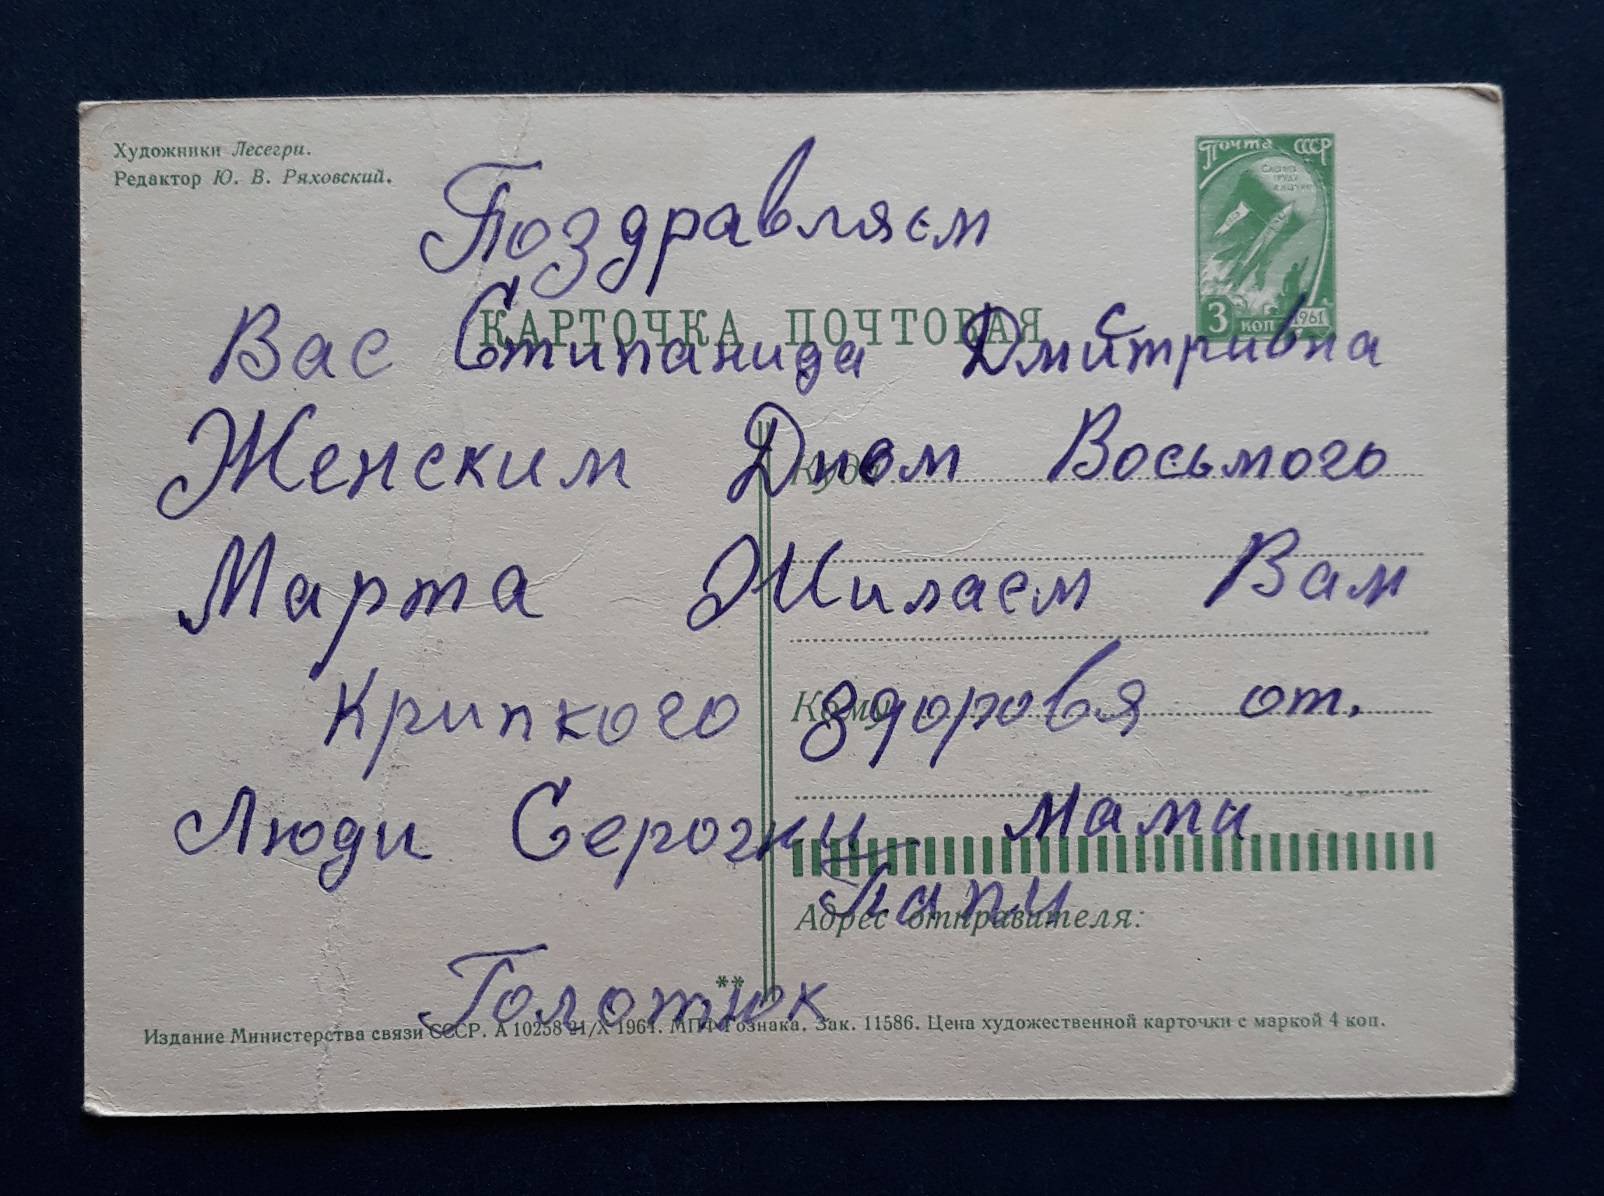 Художники Лесегри.
Редактор Ю. В. Ряховский.
Почта СССР
3 коп 1961
КАРТОЧКА ПОЧТОВАЯ
Поздравляем
Вас Стипанида Дмитривна
Женским Дном Восьмого
Марта Жилаем Вам
Крипкого здоровя от.
Люди Серогни мами
папи
Голотюк
Куда
Кому
Адрес отправителя:
**
Издание Министерства связи СССР. А 10258 21/X 1964. МПФ Гознака. Зак. 11586. Цена художественной карточки с маркой 4 коп.